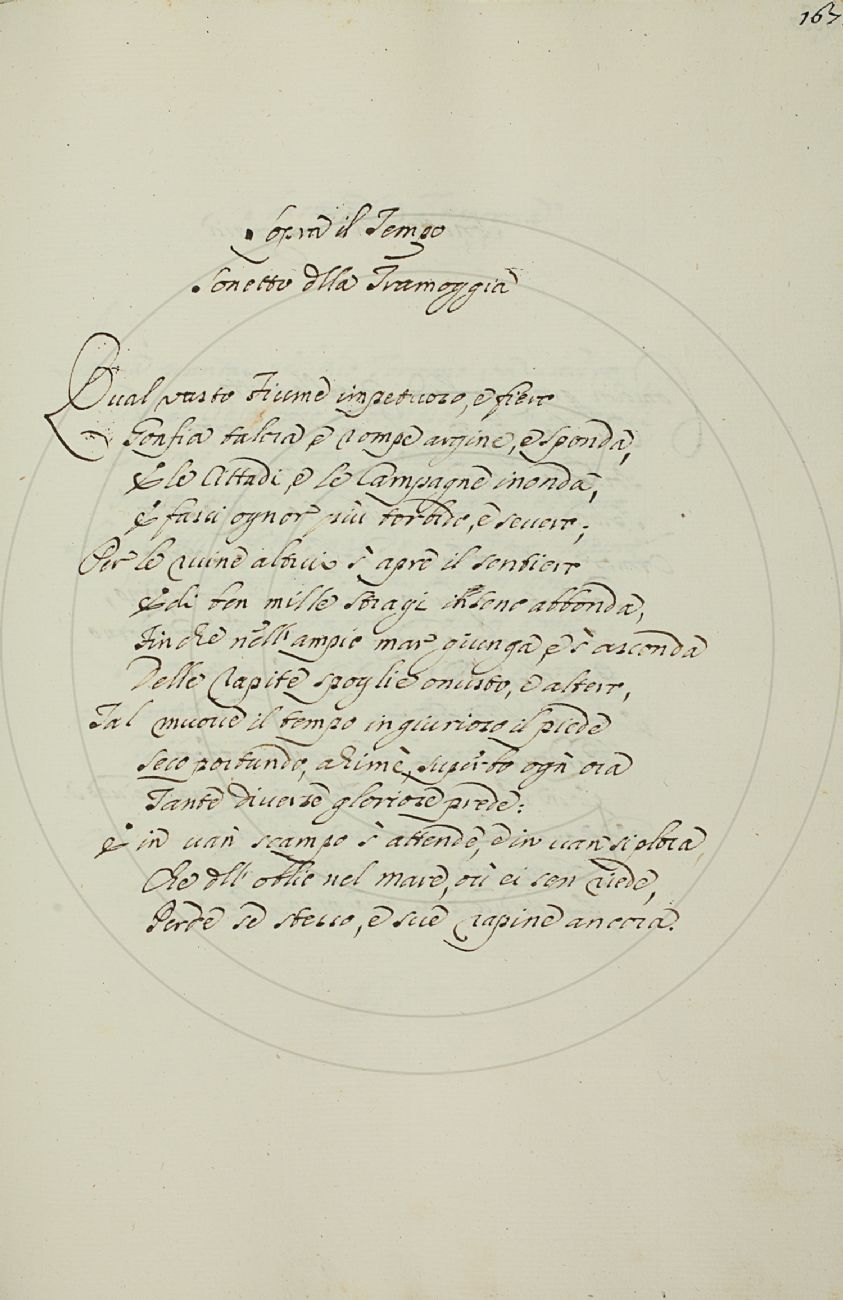 167
Sopra il Tempo
Sonetto dlla Tramoggia
Qual vasto fiume impetuoso, e fiero
Gonfia talora e rompe argine, e sponda,
E le Cittadi, e le Campagne inonda,
E farsi ognor più torbido, e severo;
Per le ruine altrui s'apre il sentiero
E di ben mille stragi in seno abbonda,
Finche nell'ampio mar giunga, e s'asconda
Delle rapite spoglie onusto, e altero,
Tal muove il tempo ingiurioso il piede
seco portando, ahimè, superbo ogn'ora
Tante diverse gloriose prede:
E in van scampo s'attende, e in van si plora,
Che dll'oblio nel mare, ov'ei sen riede,
Perde se stesso, e sue rapine ancora.